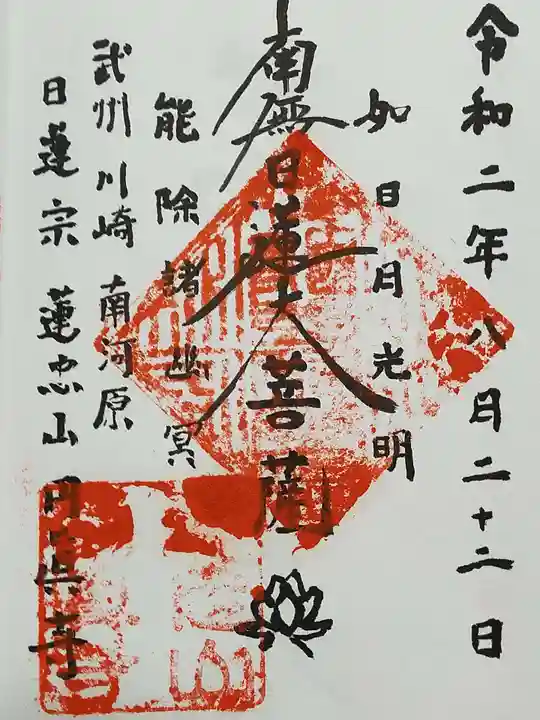 令和二年八日二十二日
如日月光明
南無日蓮大菩薩
能除諸幽冥
武州川崎 南河原
日蓮宗 蓮忠山 円眞寺